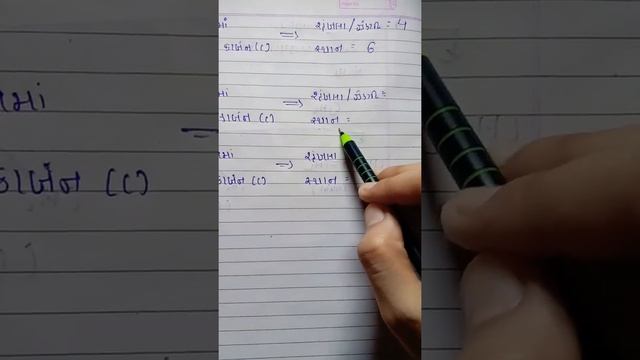 માં ⟹ શૃંખલા / સંક્રતિ = 4
કાર્બન (C) સ્થાન = 6
માં ⟹ શૃંખલા / સંક્રતિ =
કાર્બન (C) સ્થાન =
માં ⟹ શૃંખલા
કાર્બન (C) સ્થાન =